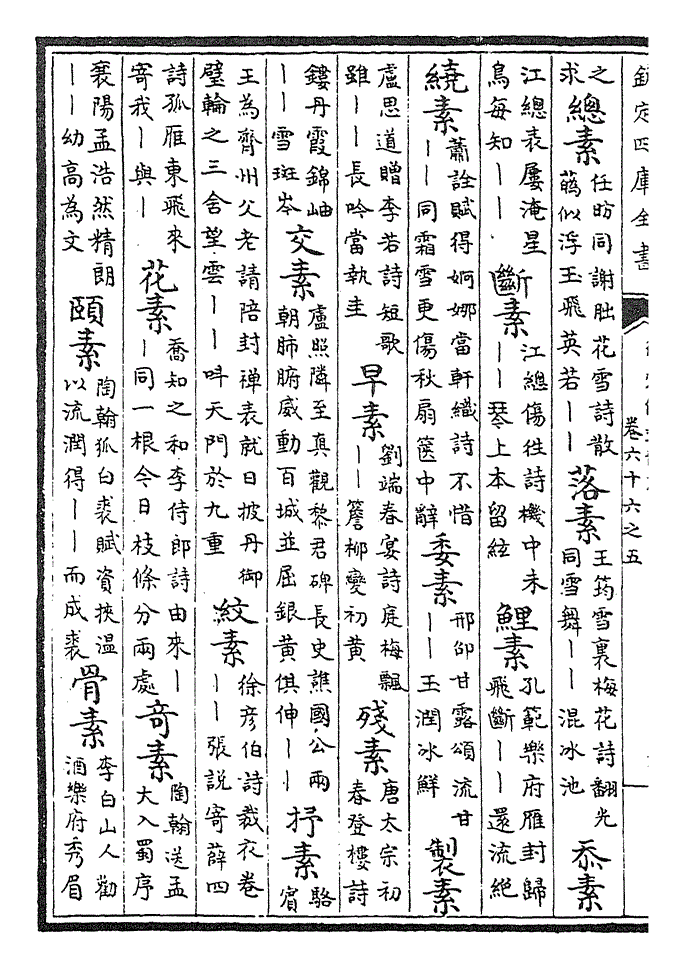 欽定四庫全書
卷六十六之五
之求總素任昉同謝朏花雪詩散蕅似浮玉飛英若丨丨落素王筠雪裏梅花詩翻光同雪舞丨丨混冰池忝素
江總表屢淹星鳥每知丨丨斷素江總傷往詩機中未丨丨琴上本留絃鯉素孔範樂府雁封歸飛斷丨丨還流絕
繞素蕭詮賦得婀娜當軒織詩不惜丨丨同霜雪更傷秋扇篋中辭委素邢卲甘露頌流甘丨丨玉潤冰鮮製素
盧思道贈李若詩短歌雖丨丨長吟當執圭早素劉端春宴詩庭梅飄丨丨簷柳變初黃殘素唐太宗初春登樓詩
鏤丹霞錦岫丨丨雪斑岑交素盧照隣至真觀黎君碑長史譙國公兩朝肺腑威動百城並屈銀黃俱伸丨丨抒素駱賓
王為齊州父老請陪封禪表就日披丹御璧輪之三舍望雲丨丨叫天門於九重紋素徐彥伯詩裁衣卷丨丨張說寄薛四
詩孤雁東飛來寄我丨與丨花素喬知之和李侍郎詩由來丨丨同一根今日枝條分兩處奇素陶翰送孟大入蜀序
襄陽孟浩然精朗丨丨幼高為文頤素陶翰狐白裘賦資挾温以流潤得丨丨而成裘骨素李白山人勸酒樂府秀眉